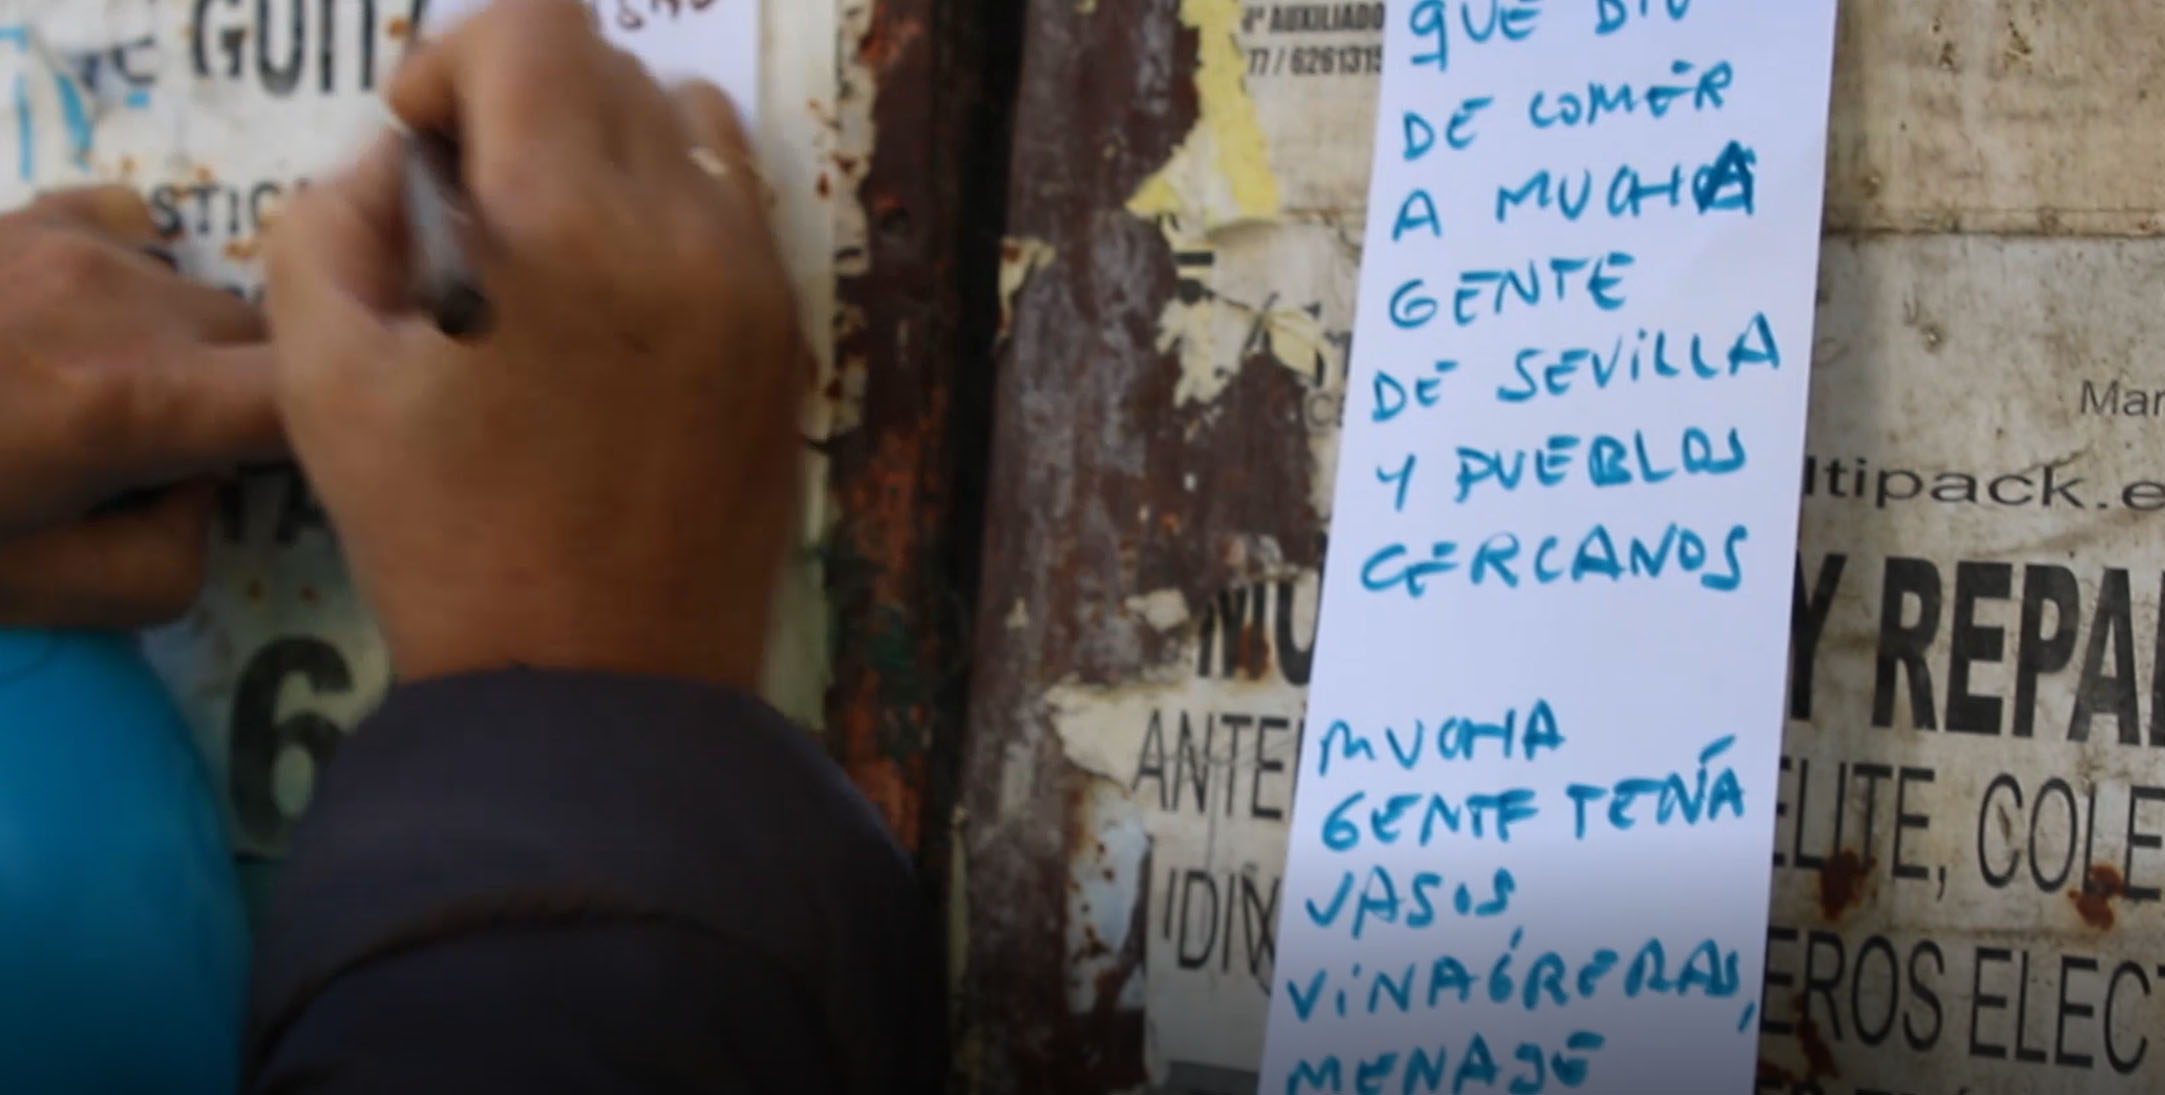 GUIT
STIC
6
ª AUXILIADO
77 / 6261315
QUE DIO
DE COMER
A MUCHA
GENTE
DE SEVILLA
Y PUEBLOS
CERCANOS
MUCHA
GENTE TENÍA
VASOS,
VINAGRERAS,
MENAJE
Mar
ltipack.e
Y REPA
ANTE
ELITE, COLE
IDIX
EROS ELEC